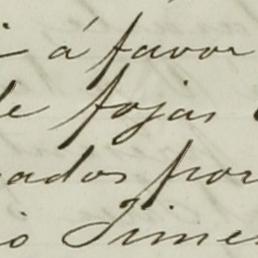 á favor
de fojas
ados por
io Jimen